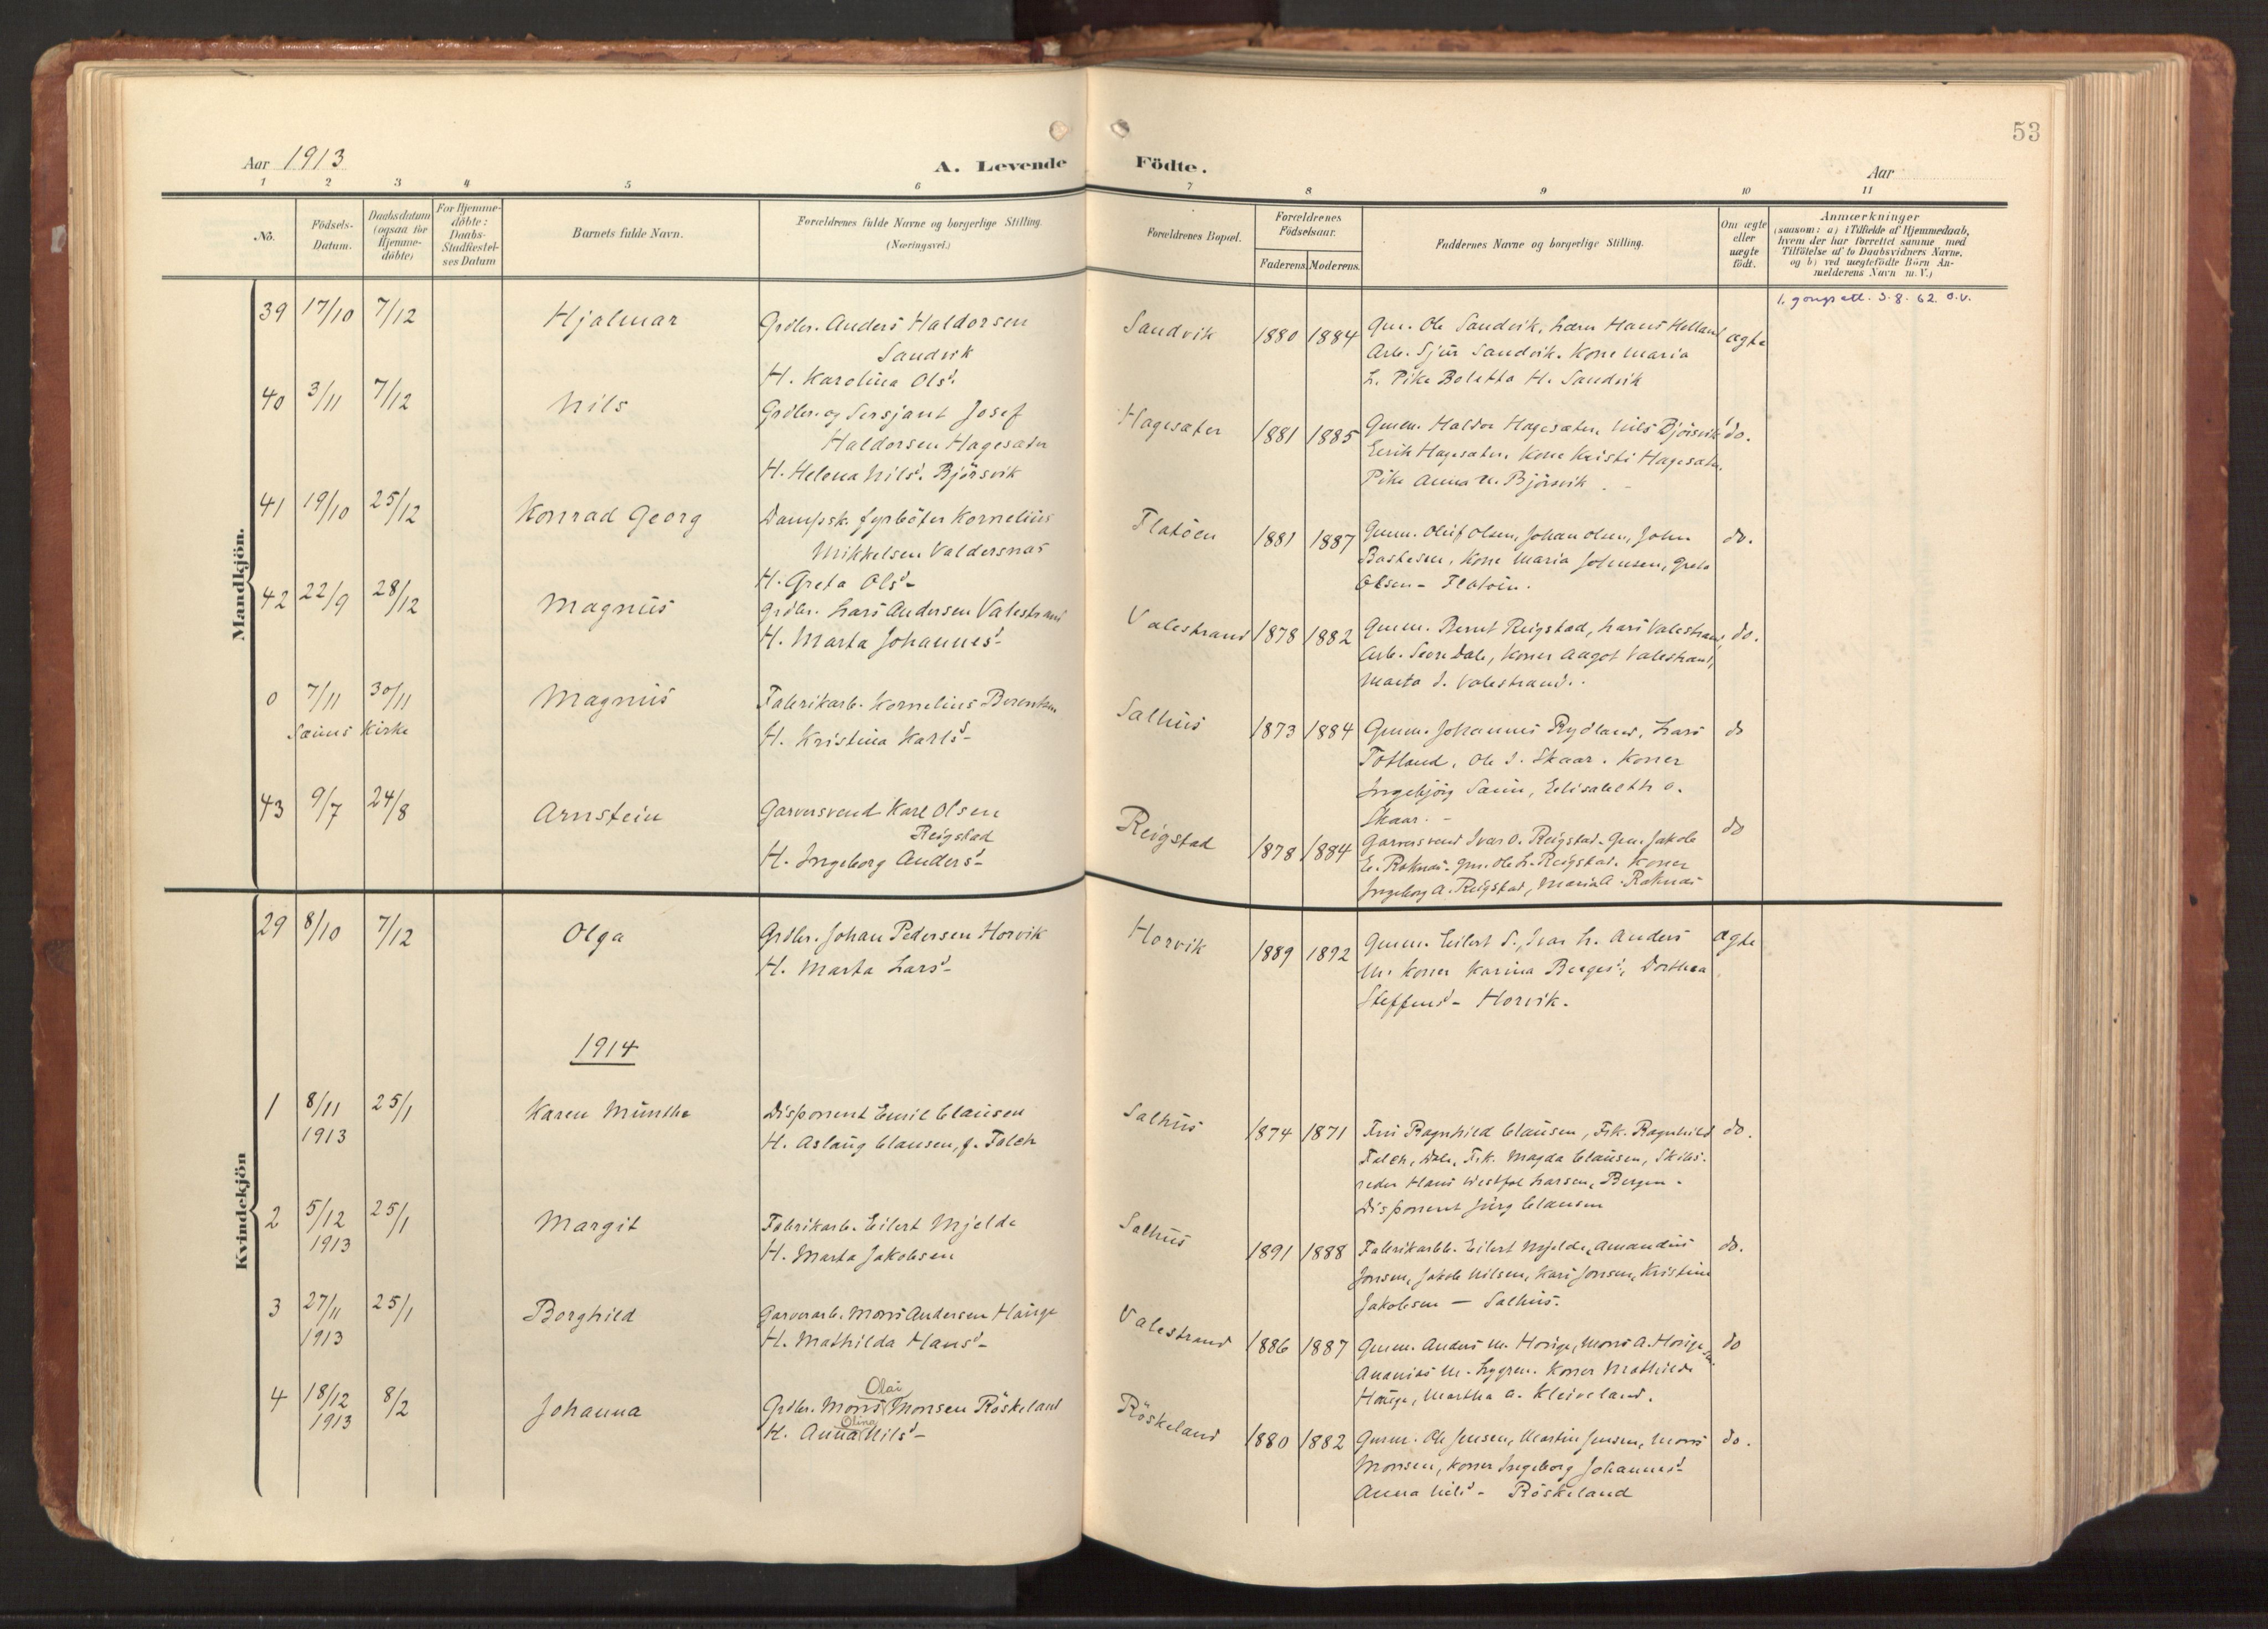 53
Aar 1913
A. Levende Födte.
Aar
1 2 3 4 5 6 7 8 9 10 11
No.
Födsels-Datum.
Daabsdatum (ogsaa for Hjemme-döbte)
For Hjemme-döbte: Daabs-Stadfæstel-ses Datum
Barnets fulde Navn.
Forældrenes fulde Navne og borgerlige Stilling.
(Næringsvei.)
Forældrenes Bopæl.
Forældrenes Födselsaar.
Faderens. Moderens.
Faddernes Navne og borgerlige Stilling.
Om ægte eller uægte födt.
Anmærkninger
(saasom: a) i Tilfælde af Hjemmedaab,
hvem der har forrettet samme med
Tilföielse af to Daabsvidners Navne,
og b) ved uægtefödte Börn An-
melderens Navn m. V.)
Mandkjön.
39 17/10 7/12 Hjalmar Grdbr. Anders Haldorsen
Sandvik
H. Karolina Olsd.
Sandvik 1880 1884 Gm. Ole Sandvik, Hans Helland
Arb. Sjur Sandvik. Kone Maria
L. Pike Boletta H. Sandvik
ægte
1. gongs att. 3.8.62. O.V.
40 3/11 7/12 Nils Grdbr. og Sersjant Josef
Haldorsen Hagesæter
H. Helena Nilsd. Björsvik
Hagesæter 1881 1885 Gmm. Haldor Hagesæter, Nils Björsvik
Eirik Hagesæter, Kone Kristi Hagesæter
Pike Anna N. Björsvik
do.
41 19/10 25/12 Konrad Georg Dampsk. fyrböter Kornelius
Mikkelsen Valdersnæs
H. Greta Olsd.
Flatöen 1881 1887 Gmm. Oluf Olsen, Johan Olsen, John
Bastesen, Kone Maria Johnsen, Greta
Olsen - Flatöen.
do.
42 22/9 28/12 Magnus Grdbr. Lars Andersen Valestrand
H. Marta Johannesd.
Valestrand 1878 1882 Gmm. Bernt Reigstad, Lars Valestrand,
Arb. Sevre Dale, Koner Aagot Valestrand,
Marta J. Valestrand.
do.
0 7/11 30/11 Magnus Fabrikarb. Kornelius Berentsen
Sæims Kirke
H. Kristina Karlsd.
Salhus 1873 1884 Gmm. Johannes Rydland, Lars
Totland, Ole J. Skaar. Koner
Ingebjörg Saim, Elisabeth O.
Skaar.
do
43 9/7 24/8 Arnstein Garversvend Karl Olsen
Reigstad
H. Ingeborg Andersd.
Reigstad 1878 1884 Garversvend Ivar O. Reigstad. Gm. Jakob
E. Roknæs. Gm. Ole L. Reigstad. Koner
Ingeborg A. Reigstad, Maria A. Roknæs
do
Kvindekjön
29 8/10 7/12 Olga Grdbr. Johan Pedersen Horvik
H. Marta Larsd.
Horvik 1889 1892 Gmm. Eilert S., Ivar L. Anders
M. Koner Karina Bergesd., Dorthea
Steffensd. Horvik.
ægte
1914
1 8/11 1913 25/1 Karen Munthe Disponent Emil Clausen
H. Aslaug Clausen, f. Falch
Salhus 1874 1871 Fru Ragnhild Clausen, Frk. Ragnhild
Falch, Dale, Frk. Magda Clausen, Skibs-
reder Hans Westfal Larsen, Bergen.
Disponent Jürg Clausen
do.
2 5/12 1913 25/1 Margit Fabrikarb. Eilert Mjelde
H. Marta Jakobsen
Salhus 1891 1888 Fabrikarbb. Eilert Mjelde, Amandus
Jonsen, Jakob Nilsen, Kari Jonsen, Kristine
Jakobsen — Salhus.
do.
3 27/11 1913 25/1 Borghild Garverarb. Mons Andersen Hauge
H. Mathilda Hansd.
Valestrand 1886 1887 Gmm. Anders M. Horige, Mons A. Horige
Ananias M. Lygren. Koner Mathilde
Hauge, Martha A. Kleiveland.
do
4 18/12 1913 8/2 Johanna Grdbr. Mons Olai Monsen Röskeland
H. Anna Olina Nilsd.
Röskeland 1880 1882 Gmm. Ole Jensen, Martin Jensen, Mons
Monsen, Koner Ingeborg Johannesd.
Anna Nilsd. Röskeland
do.